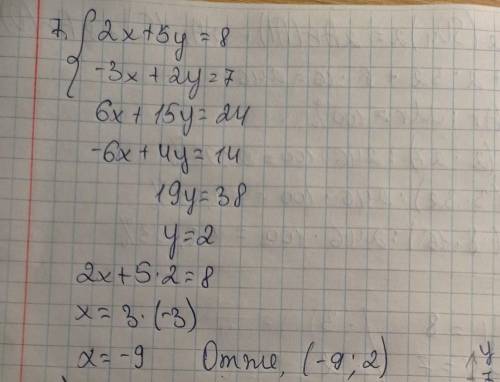 7. { 2x+5y=8
-3x+2y=7
6x+15y=24
-6x+4y=14
19y=38
y=2
2x+5·2=8
x=3·(-3)
x=-9 Отже, (-9; 2)
y